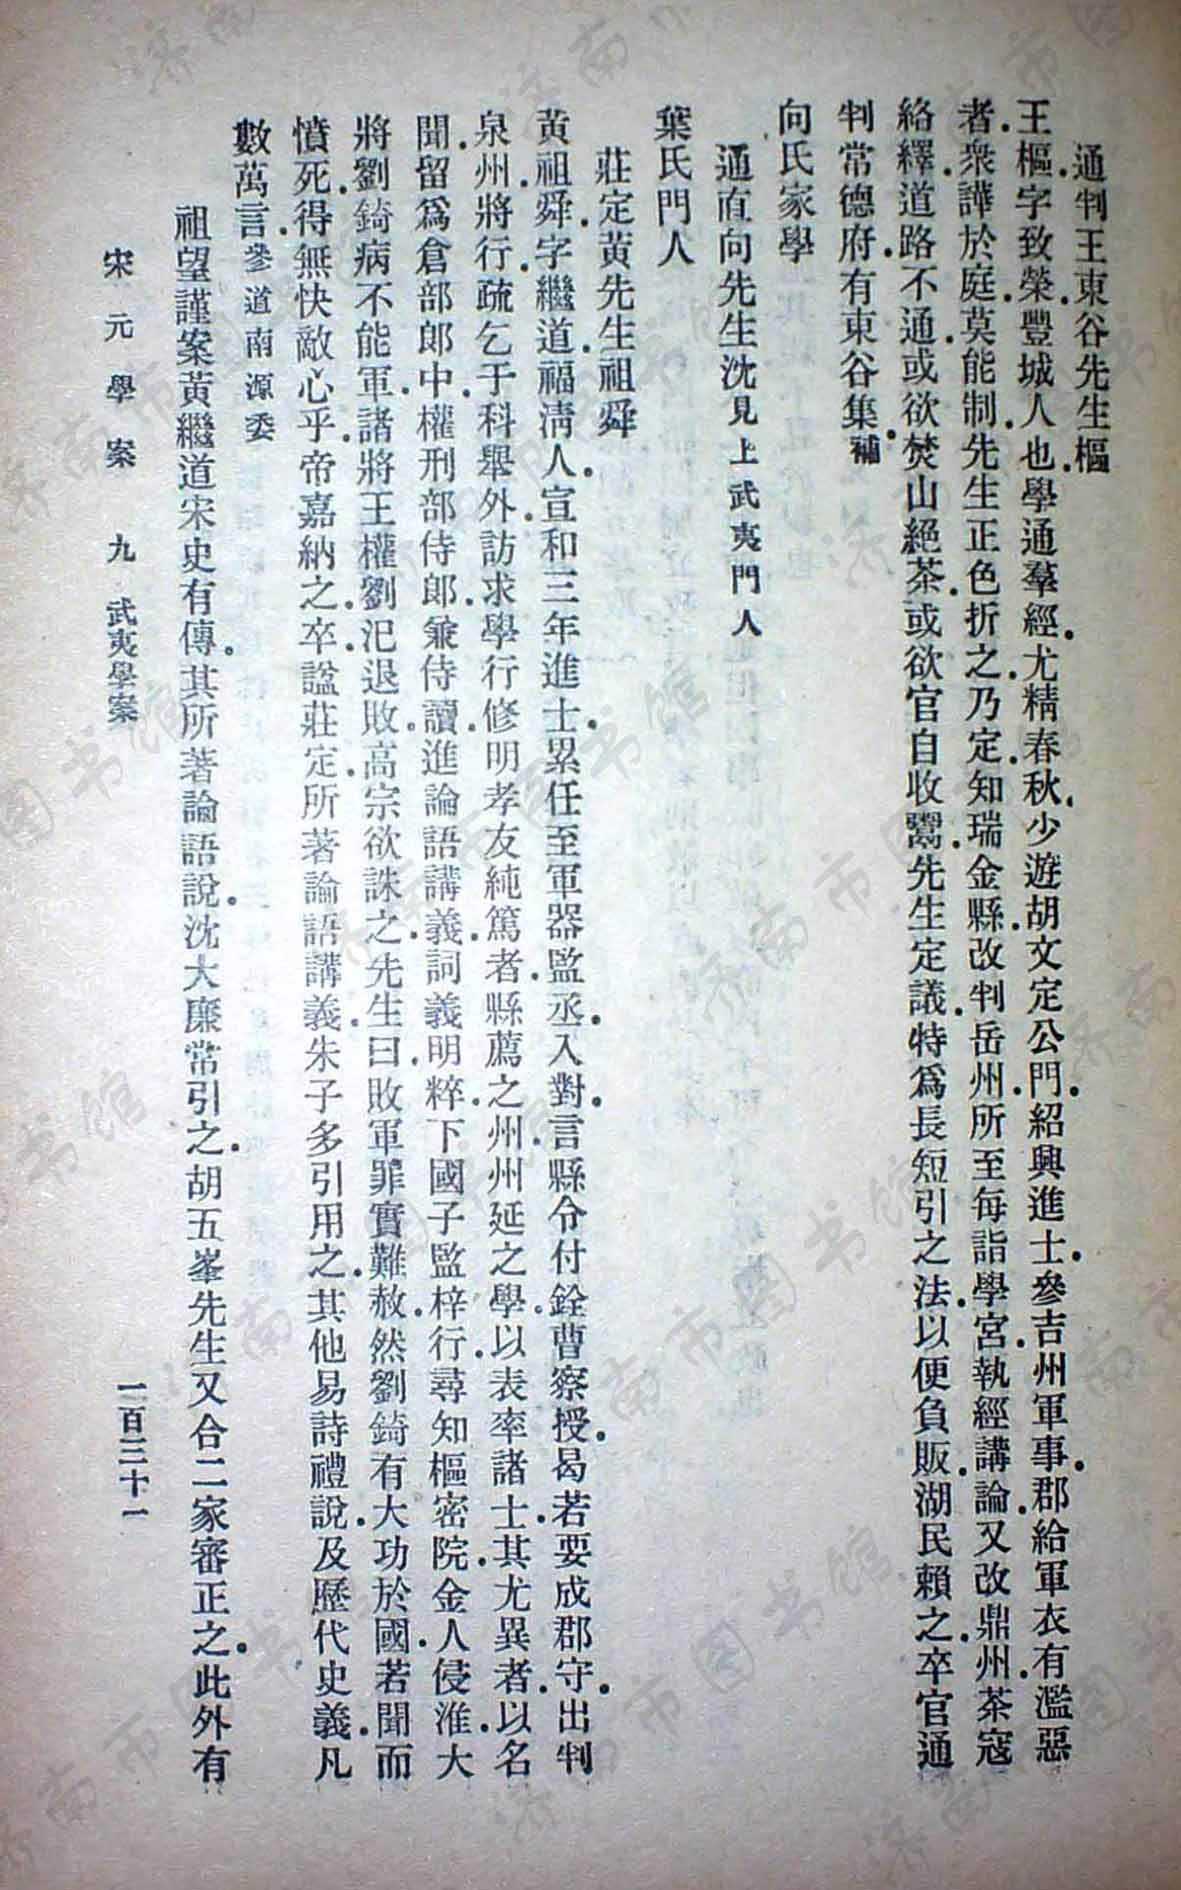 通判王東谷先生樞
王樞字致榮豐城人也學通羣經尤精春秋少遊胡文定公門紹興進士參吉州軍事郡給軍衣有濫惡
者衆譁於庭莫能制先生正色折之乃定知瑞金縣改判岳州所至每詣學宮執經講論又改鼎州茶寇
絡繹道路不通或欲焚山絕茶或欲官自收鬻先生定議特爲長短引之法以便負販湖民賴之卒官通
判常德府有東谷集補
向氏家學
通直向先生沈見上武夷門人
葉氏門人
莊定黃先生祖舜
黃祖舜字繼道福淸人宣和三年進士累任至軍器監丞入對言縣令付銓曹察授曷若要成郡守出判
泉州將行疏乞于科舉外訪求學行修明孝友純篤者縣薦之州州延之學以表率諸士其尤異者以名
聞留爲倉部郎中權刑部侍郎兼侍讀進論語講義詞義明粹下國子監梓行尋知樞密院金人侵淮大
將劉錡病不能軍諸將王權劉汜退敗高宗欲誅之先生曰敗軍罪實難赦然劉錡有大功於國若聞而
憤死得無快敵心乎帝嘉納之卒諡莊定所著論語講義朱子多引用之其他易詩禮說及歷代史義凡
數萬言參道南源委
祖望謹案黃繼道宋史有傳其所著論語說沈大廉常引之胡五峯先生又合二家審正之此外有
宋元學案 九 武夷學案 一百三十一
济南市图书馆